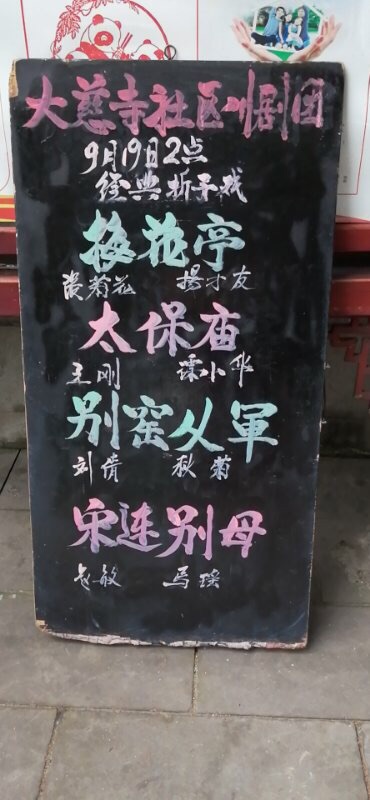 大慈寺社区川剧团
9月19日2点
经典折子戏
梅花亭
太保庙
王刚 谭小华
别窑从軍
刘倩 秋菊
宋连别母
赵敏 马瑶